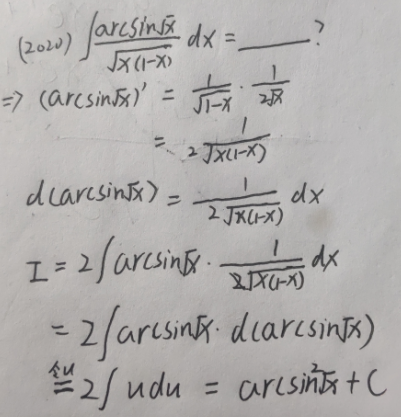 (2020) ∫ arcsin√x / √x(1-x) dx = ____ ?
=> (arcsin√x)' = 1/√1-x · 1/2√x
= 1 / 2√x(1-x)
d(arcsin√x) = 1 / 2√x(1-x) dx
I = 2∫arcsin√x · 1 / 2√x(1-x) dx
= 2∫arcsin√x · d(arcsin√x)
令u = 2∫udu = arcsin²√x + C